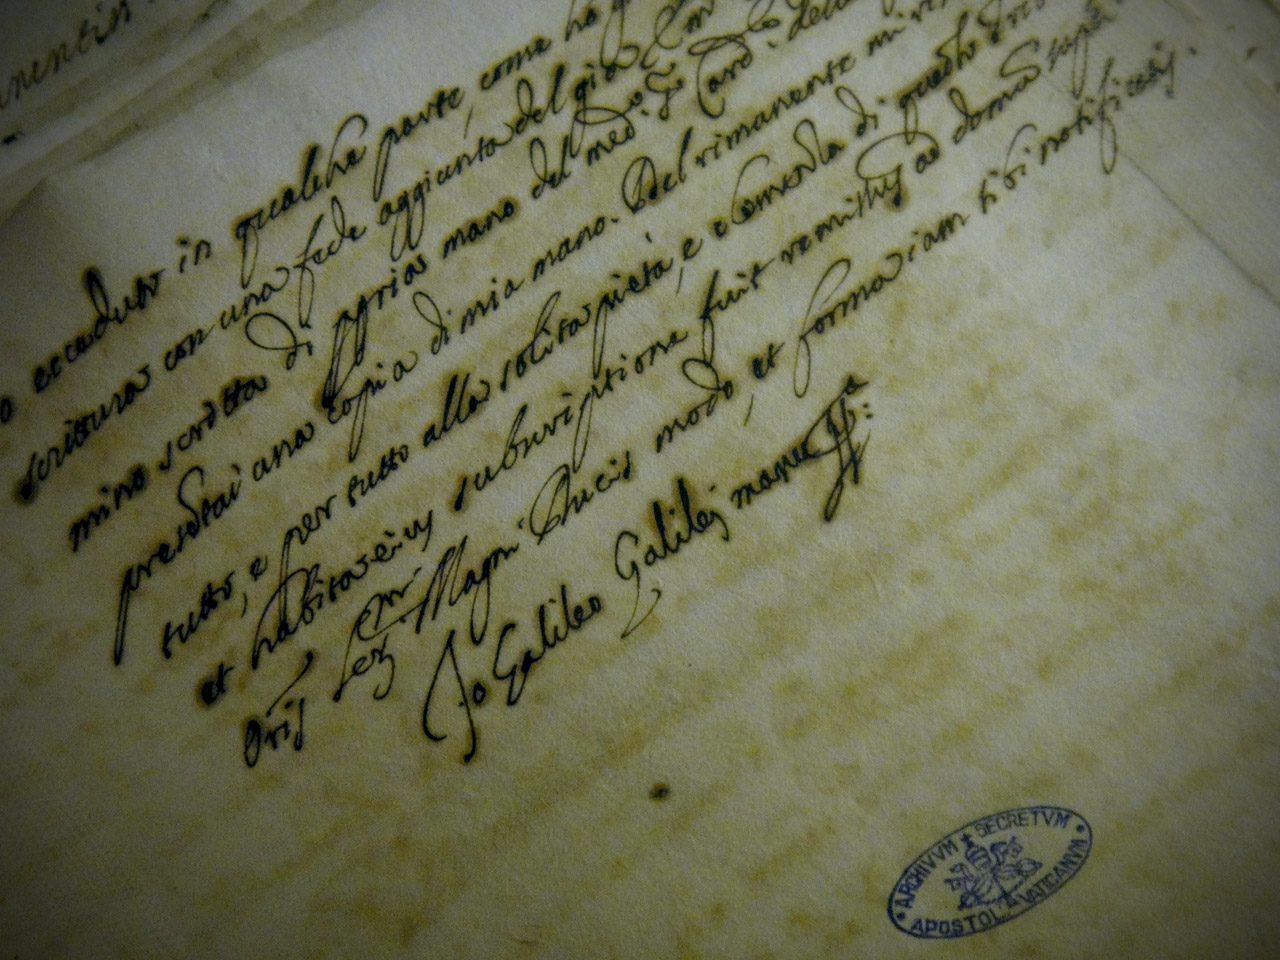 nentia
o ecceduto in qualche parte, come ho
scrittura con una fede aggiunta del già
mino scritta di ppria mano del med.º Sr Card.
presētai una copia di mia mano. Del rimanente mi
tutto, e per tutto alla solita pietà, e clemenza di questo
et habita eius subscriptione fuit remissus ad domū
Oris Ser. Magni Ducis modo, et forma iam sibi notificatis.
Io Galileo Galilej manu ppa:
ARCHIVVM SECRETVM
APOSTOL. VATICANVM